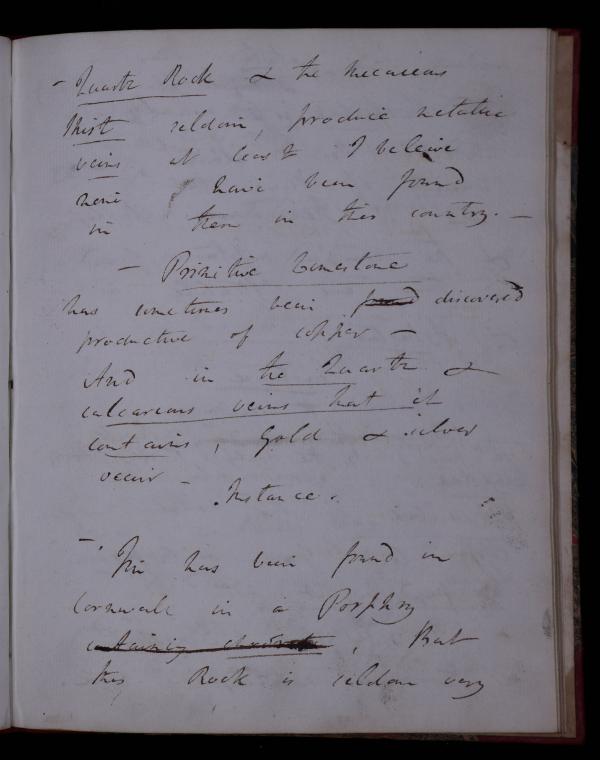 – Quartz Rock & the micaceous
shist seldom, produce metallic
veins at least I beleive
none have been found
in them in this country. –
– Primitive Limestone
has sometimes been found discovered
productive of copper –
And in the Quartz &
calcareous veins that it
contains, Gold & silver
occur –
Instance.
– Tin has been found in
Cornwall in a Porphyry
containing , But
this Rock is seldom very